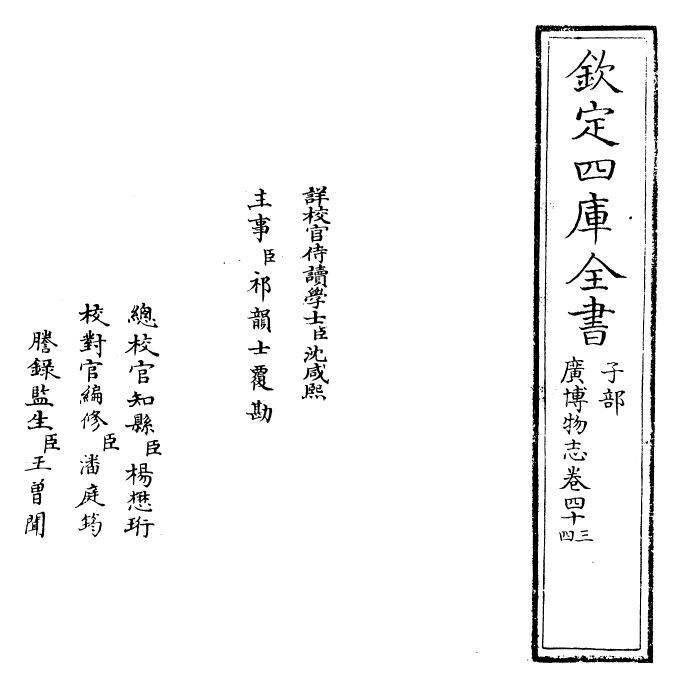 欽定四庫全書
子部
廣博物志卷四十三四
詳校官侍讀學士臣沈咸熙
主事臣祁韻士覆勘
總校官知縣臣楊懋珩
校對官編修臣潘庭筠
謄錄監生臣王曾聞